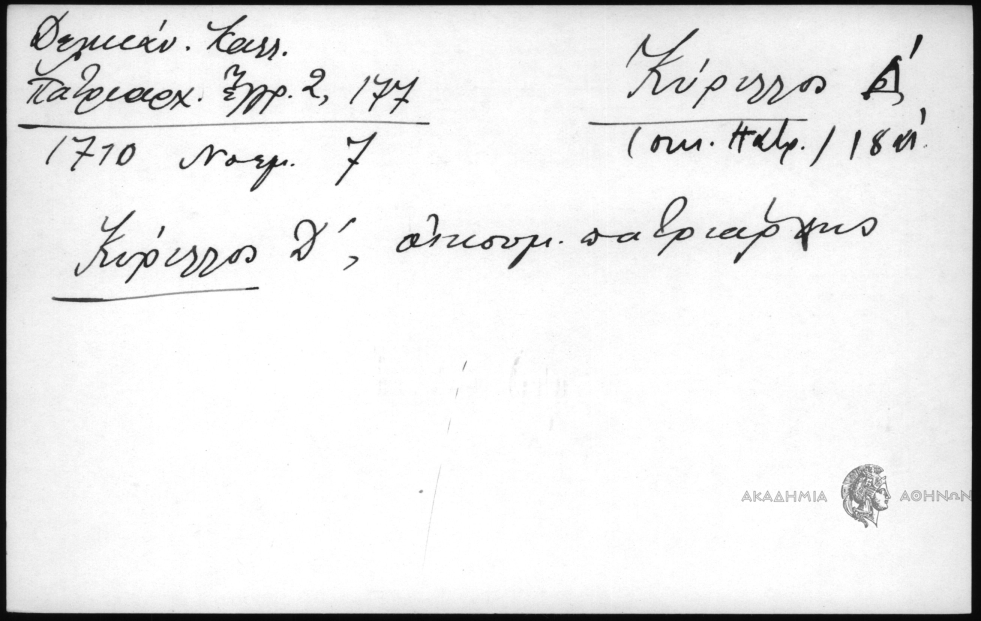 Δελικάν. Καλλ.
Πατριαρχ. Ἔγγρ. 2, 177
1710 Νοεμ. 7
Κύριλλος Δ´
(οικ. Πατρ.) 18 αι.
Κύριλλος Δ´, οἰκουμ. πατριάρχης
ΑΚΑΔΗΜΙΑ ΑΘΗΝΩΝ